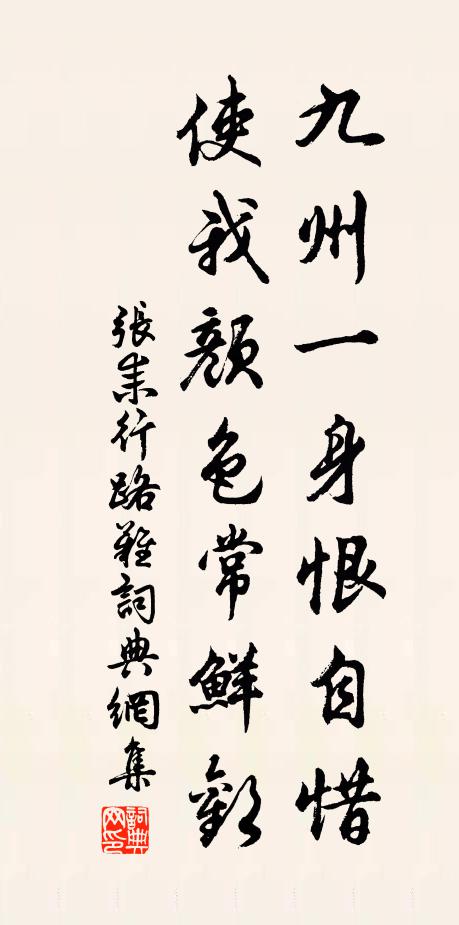 九州一身恨自惜
使我顏色常鮮歡
張耒行路難詞典網集
詞典网印